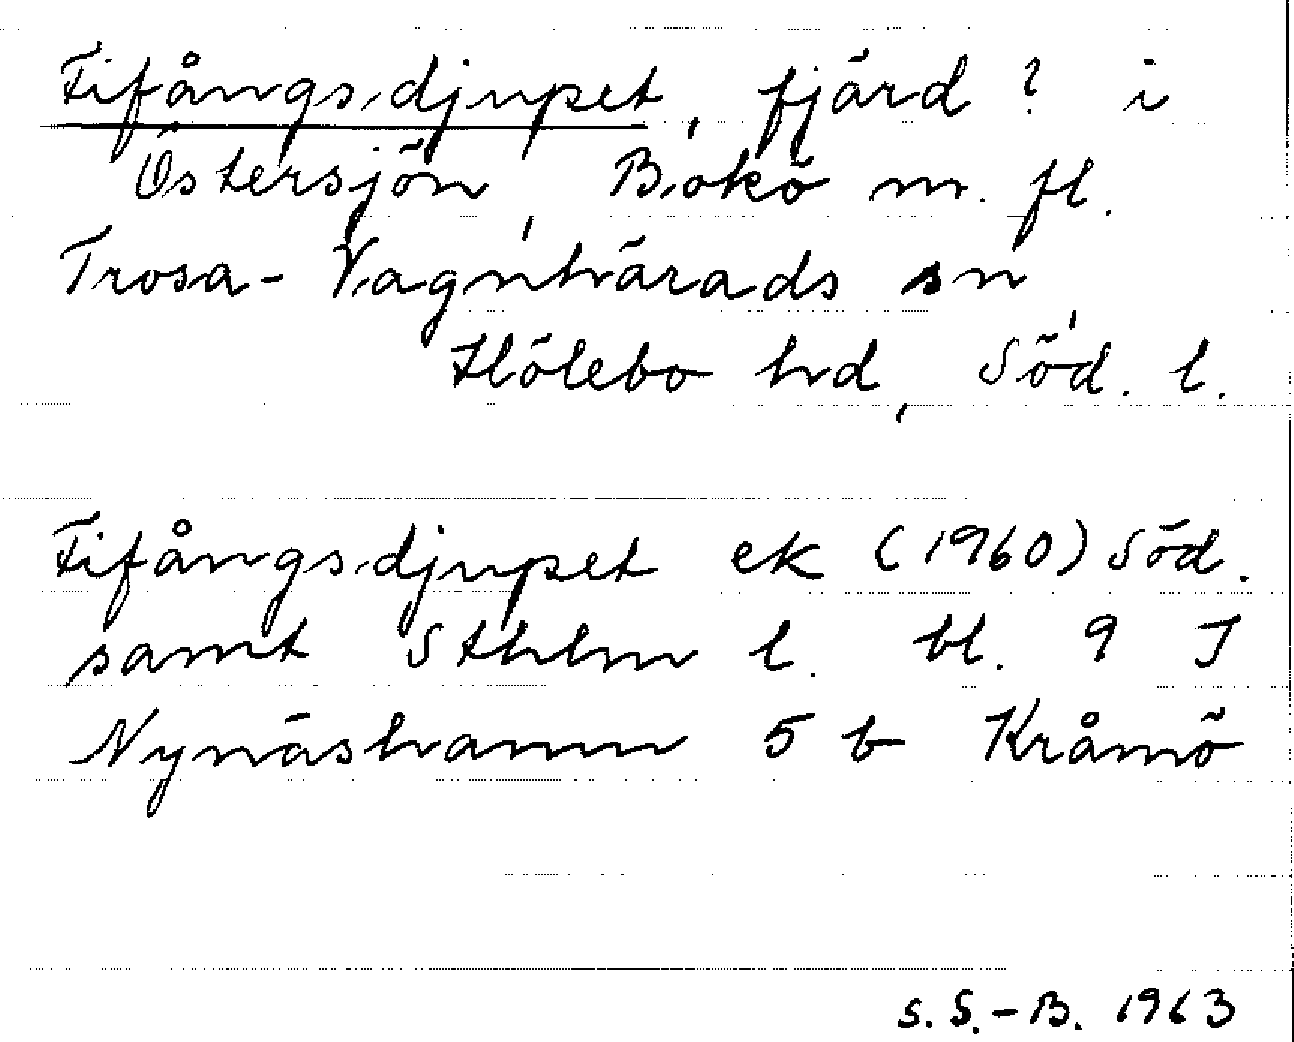 Fifångsdjupet, fjärd? i
Östersjön, Bokö m. fl.
Trosa-Vagnhärads sn,
Hölebo hd, Söd. l.
Fifångsdjupet ek (1960) Söd.
samt Sthlm l. bl. 9 I
Nynäshamn 5 b Kråmö
S. S.-B. 1963